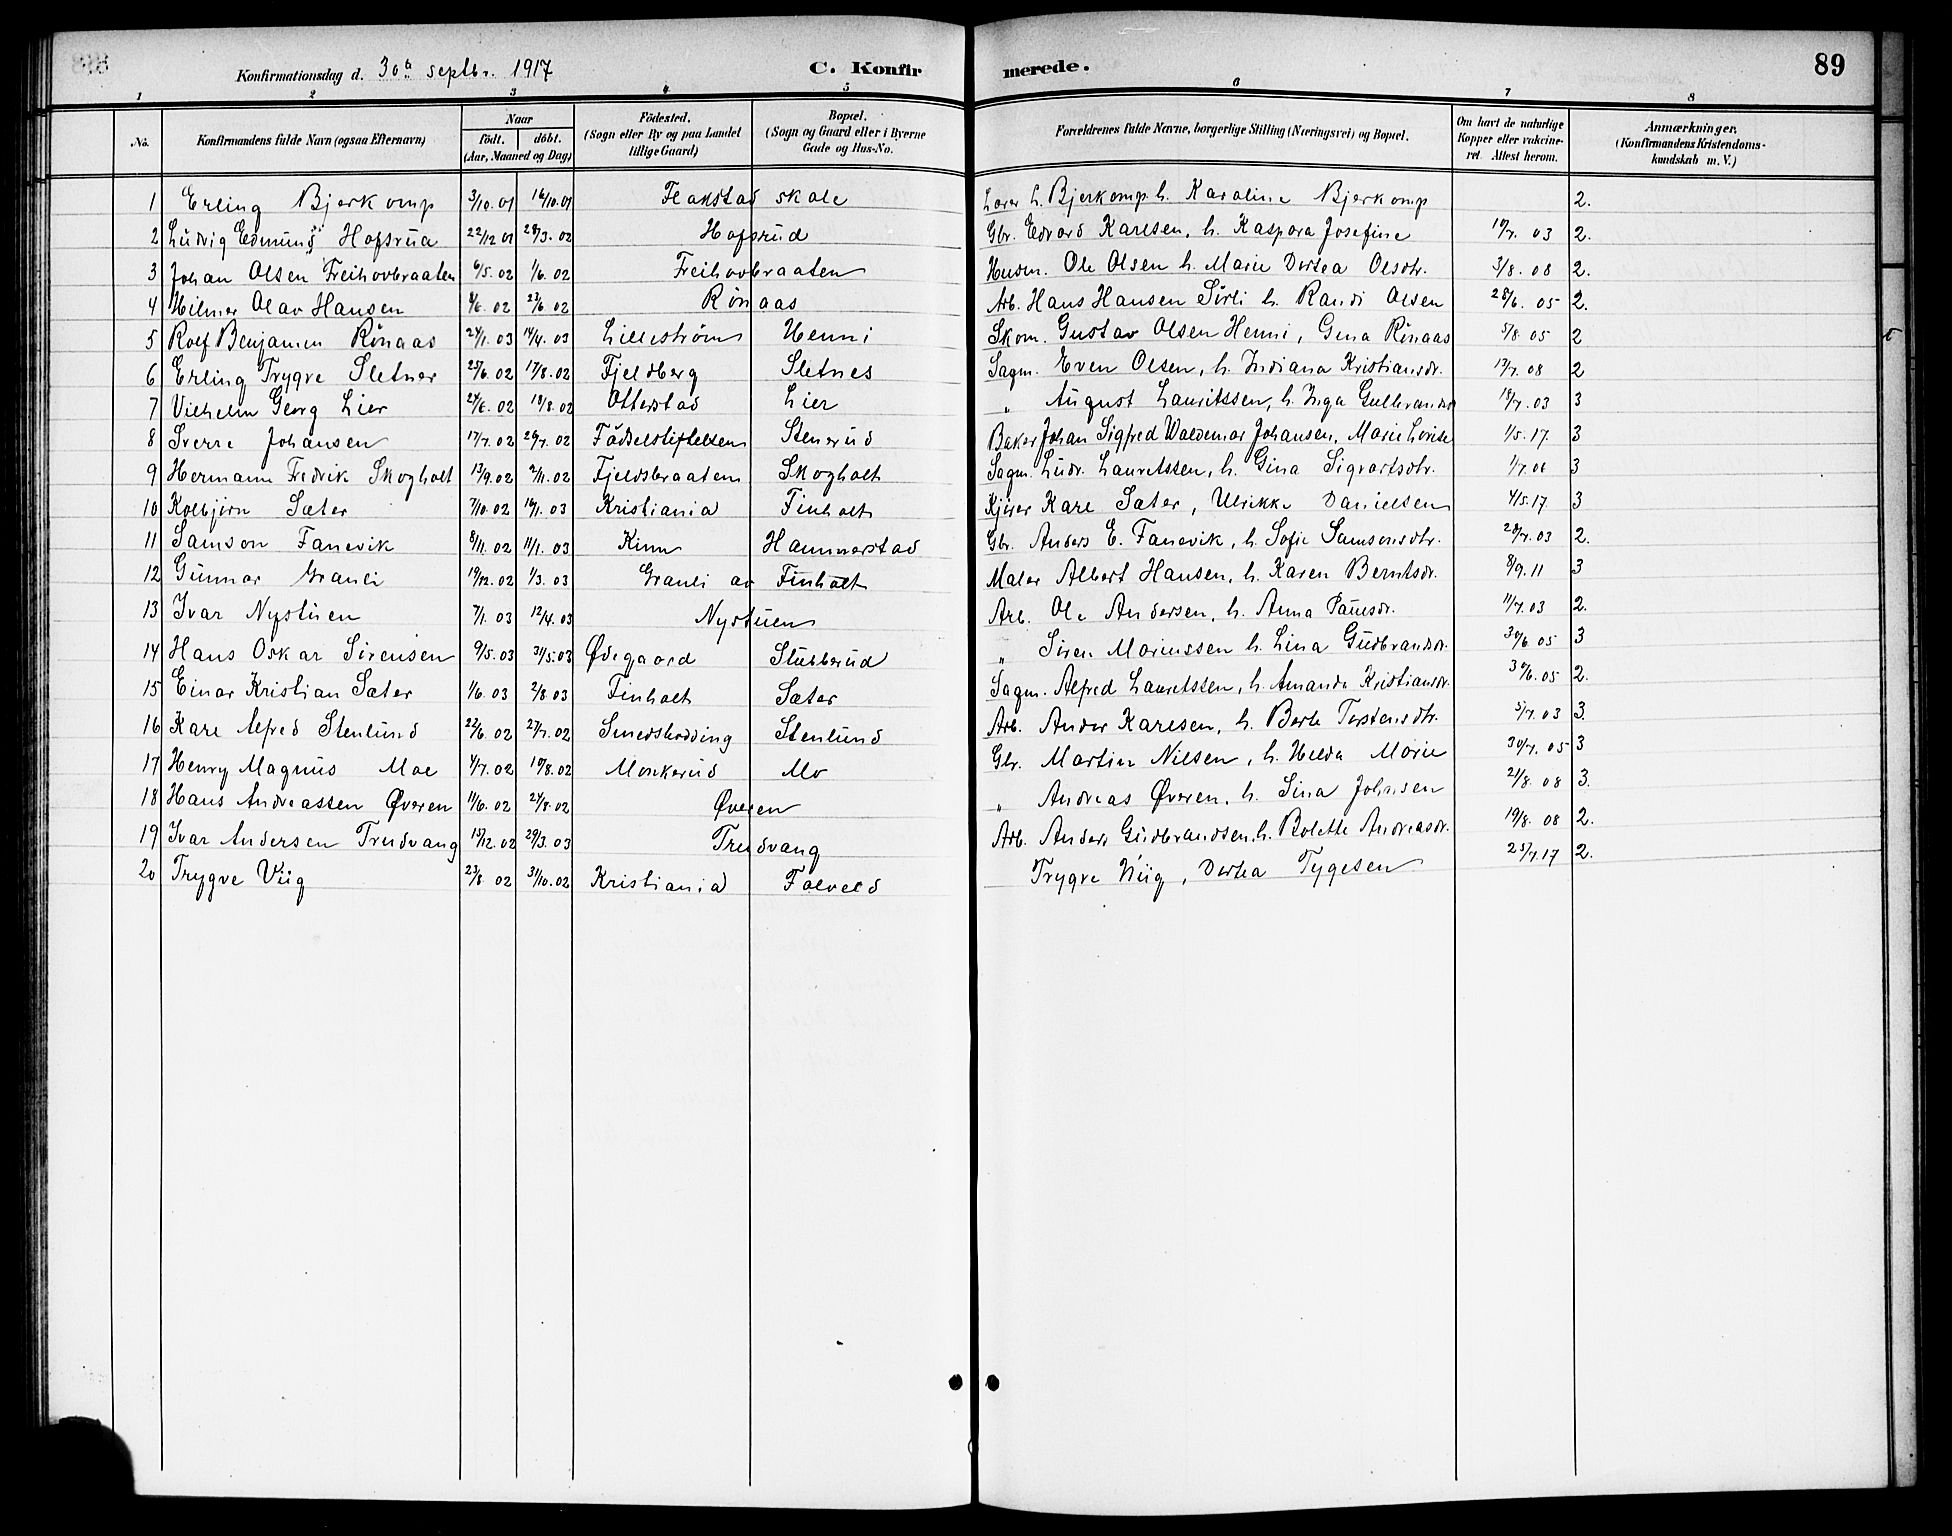 Konfirmationsdag d. 30te septbr. 1917 C. Konfirmerede. 89
1 2 3 4 5 6 7 8
No. Konfirmandens fulde Navn (ogsaa Efternavn) Naar födt. döbt. (Aar, Maaned og Dag) Födested. (Sogn eller By og paa Landet tillige Gaard) Bopæl. (Sogn og Gaard eller i Byerne Gade og Hus-No. Forældrenes fulde Navne, borgerlige Stilling (Næringsvei) og Bopæl. Om havt de naturlige Kopper eller vakcineret. Attest herom. Anmærkninger. (Konfirmandens Kristendomskundskab m. V.)
1 Erling Bjerkomp 3/10.01 16/10.01 Flakstad skole Lærer L. Bjerkomp h. Karoline Bjerkomp 2.
2 Ludvig Edmund Hofsrud 22/12 01 28/3.02 Hofsrud Gbr. Edvard Karlsen, h. Kaspara Josefine 10/7. 03 2.
3 Johan Olsen Freihovbraaten 6/5.02 1/6.02 Freihovbraaten Husm. Ole Olsen h. Marie Dortea Olsdtr. 3/8.08 2.
4 Hilmar Olav Hansen 4/6.02 23/6 02 Rønaas Arb. Hans Hansen Sörli h. Randi Olsen 28/6.05 2.
5 Rolf Benjamin Rönaas 24/1.03 14/4.03 Lillestrøm Henni Skom. Gustav Olsen Henni, Gina Rönaas 5/8 05 2
6 Erling Trygve Sletner 25/6.02 17/8.02 Fjeldberg Sletnes Sagm. Even Olsen, h. Indiana Kristiansdr. 17/7.08 2
7 Vilhelm Georg Lier 24/6.02 10/8.02 Otterstad Lier " August Lauritssen, h. Inga Gulbrandsd 18/7.03 3
8 Sverre Johansen 17/7.02 20/7.02 Födselstiftelsen Stenerud Baker Johan Sigfred Waldemar Johansen, Marie Lovise 1/5.17. 3
9 Hermann Fredrik Skogholt 13/9.02 2/11.02 Fjeldsbraaten Skogholt Sagm. Ludv. Lauritssen, h. Gina Sigvartsdtr. 1/7.06 3
10 Kolbjörn Sæter 7/10.02 16/1.03 Kristiania Finholt Kjörer Karl Sæter, Ulrikke Danielsen 4/5.17. 3
11 Samson Fanevik 8/11.02 11/1.03 Kinn Hammerstad Gbr. Anders E. Fanevik, h. Sofie Samsonsdtr. 28/7.03 2.
12 Gunnar Granli 19/12.02 1/3.03 Granli av Finholt Maler Albert Hansen, h. Karen Berntsdr. 8/9.11 3
13 Ivar Nystuen 7/1.03 12/4.03 Nystuen Arb. Ole Andersen, h. Anna Paulsdr. 11/7.03 2.
14 Hans Oskar Sörensen 9/5.03 31/5.03 Ødegaard Stubberud " Sören Marinussen h. Lina Gudbrandsdr. 30/6 05 3
15 Einar Kristian Sæter 1/6.03 2/8 03 Finholt Sæter Sagm. Alfred Lauritssen, h. Amanda Kristiansdr. 30/6.05 2.
16 Karl Alfred Stenlund 22/6.02 27/7.02 Smedsbødding Stenlund Arb. Ander Karlsen, h. Berte Torstensdtr. 5/7.03 3.
17 Henry Magnus Moe 4/7.02 10/8.02 Monkerud Mo Gbr. Martin Nilsen, h. Hilda Marie 30/7.05 3
18 Hans Andreassen Øveren 11/6.02 24/8.02 Øveren " Andreas Øveren, h. Lina Johnsen 21/8.08 3.
19 Ivar Andersen Trudvang 15/12.02 29/3.03 Trudvang Arb. Anders Gudbrandsen. h. Bolette Andreasdr. 19/8.08 2.
20 Trygve Viig 23/8 02 31/10.02 Kristiania Folveld Trygve Viig, Dortea Tygesen 25/7.17 2.